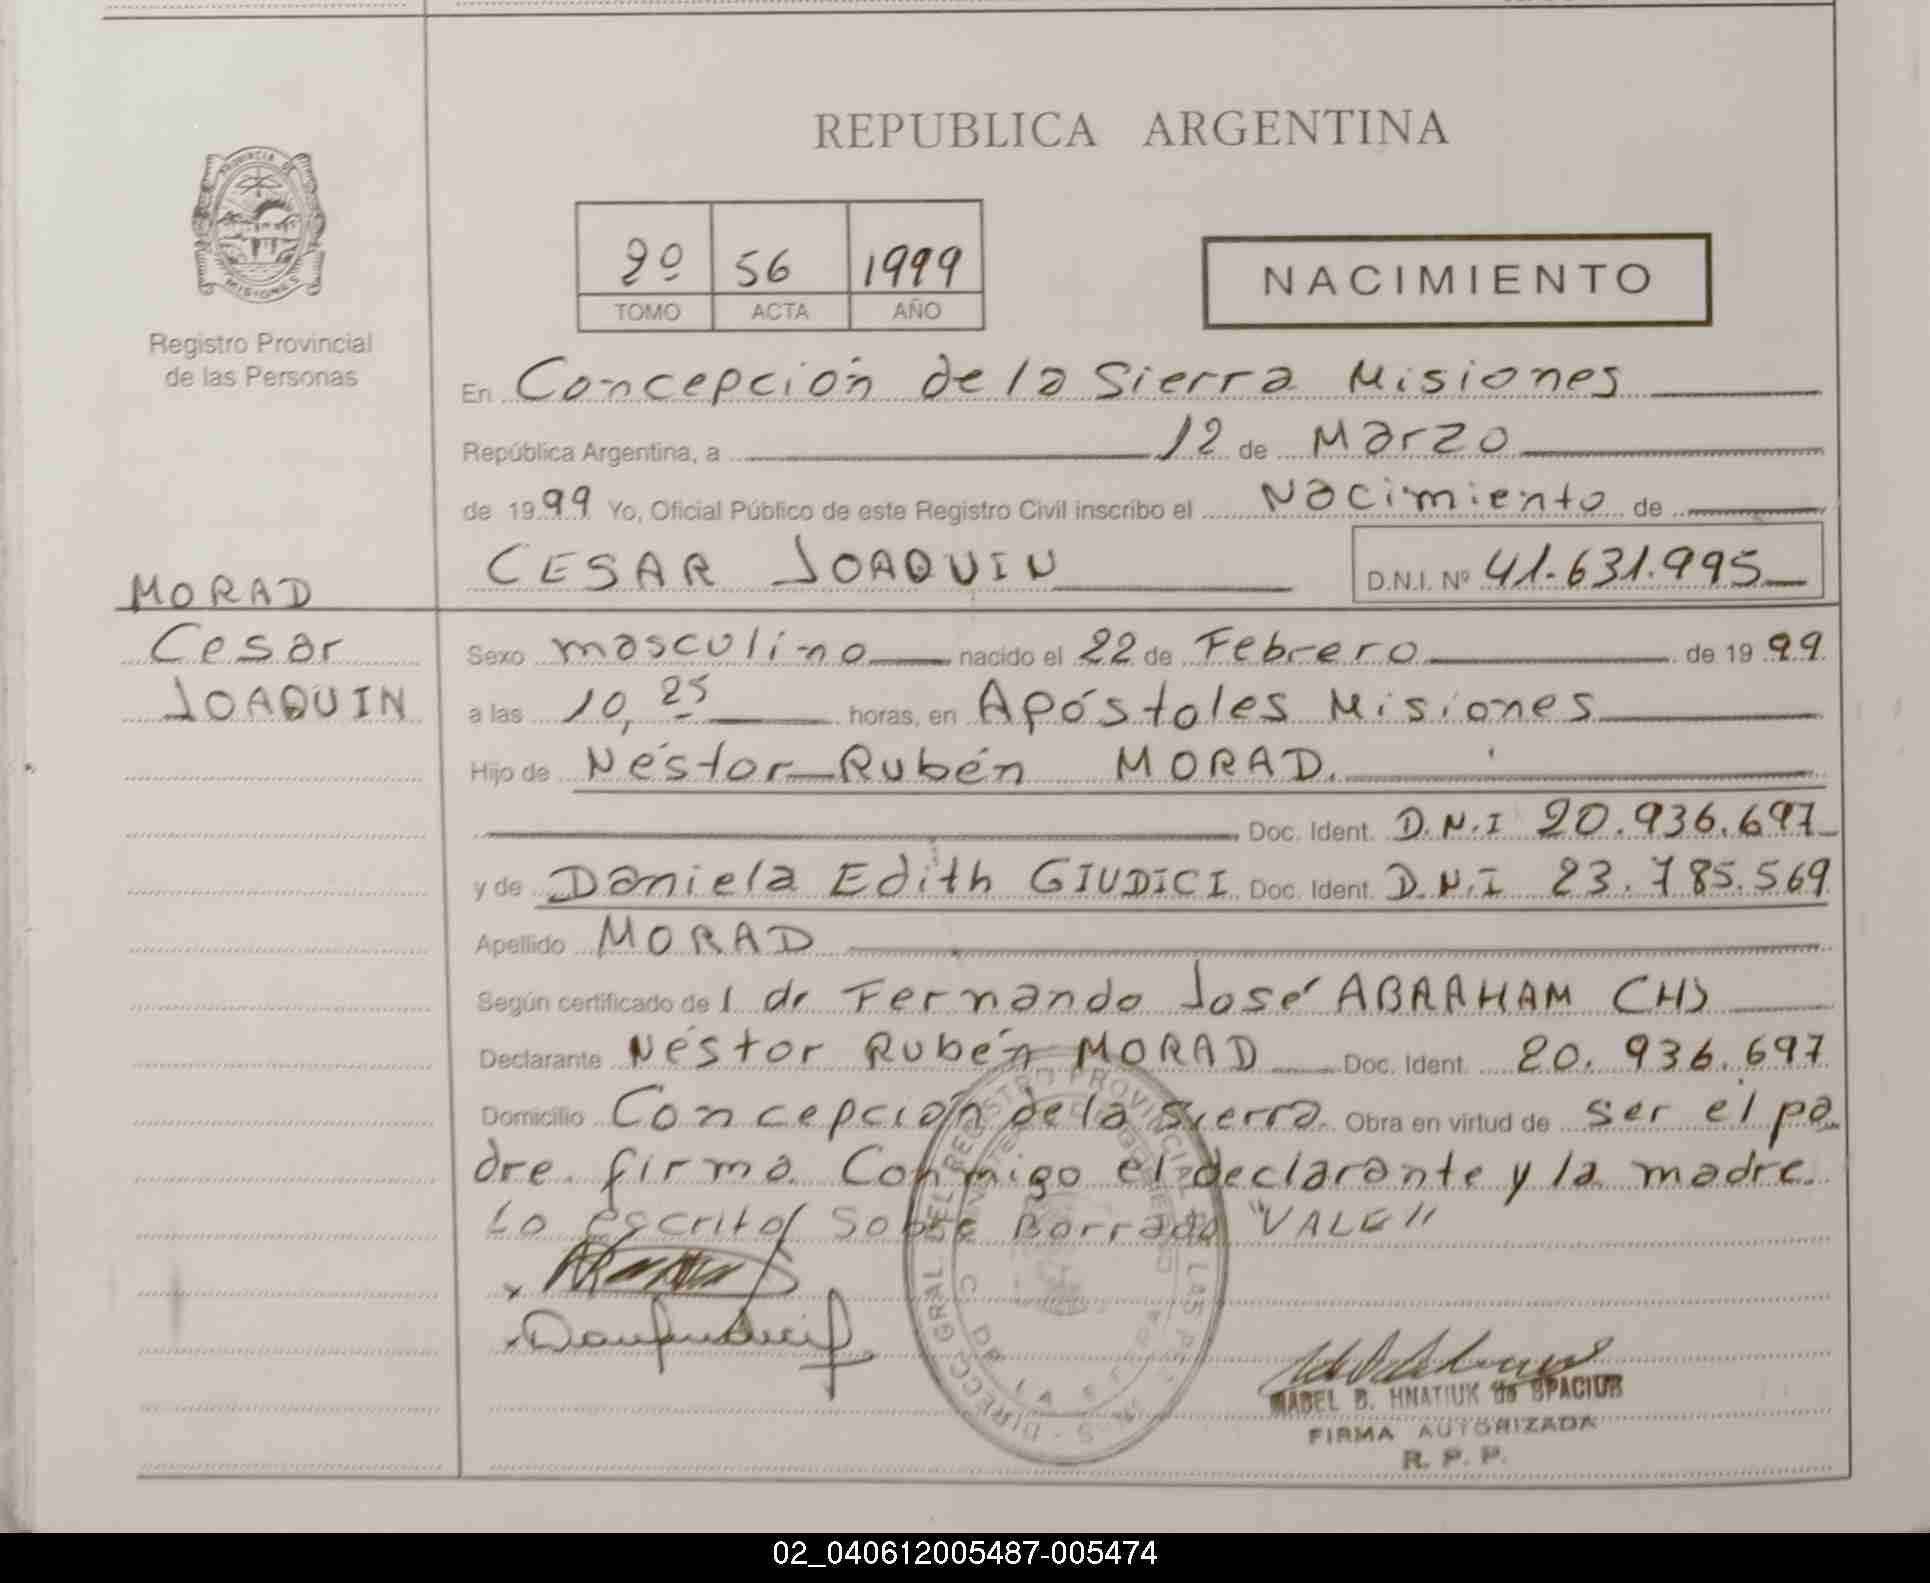 REPUBLICA ARGENTINA
PROVINCIA DE
MISIONES
Registro Provincial
de las Personas
2º 56 1999
TOMO ACTA AÑO
NACIMIENTO
En Concepción de la Sierra Misiones
República Argentina, a 12 de Marzo
de 1999 Yo, Oficial Público de este Registro Civil inscribo el Nacimiento de
CESAR JOAQUIN D.N.I. Nº 41.631.995
MORAD
Cesar
JOAQUIN
Sexo masculino nacido el 22 de Febrero de 1999
a las 10,25 horas, en Apóstoles Misiones
Hijo de Néstor Rubén MORAD.
Doc. Ident. D.N.I 20.936.697
y de Daniela Edith GIUDICI Doc. Ident. D.N.I 23.785.569
Apellido MORAD
Según certificado de l dr Fernando José ABRAHAM CHS
Declarante Néstor Rubén MORAD Doc. Ident. 20.936.697
Domicilio Concepción de la Sierra Obra en virtud de ser el pa
dre. firma Conmigo el declarante y la madre.
Lo escrito/ Sobre Borrado "VALE"
DIRECC. GRAL. DEL REGISTRO PROVINCIAL DE LAS
DE LA SIERRA
MABEL B. HNATIUK de SPACIUK
FIRMA AUTORIZADA
R. P. P.
02_040612005487-005474